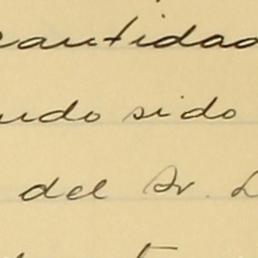 cantidad
ndo sido
del Sr.